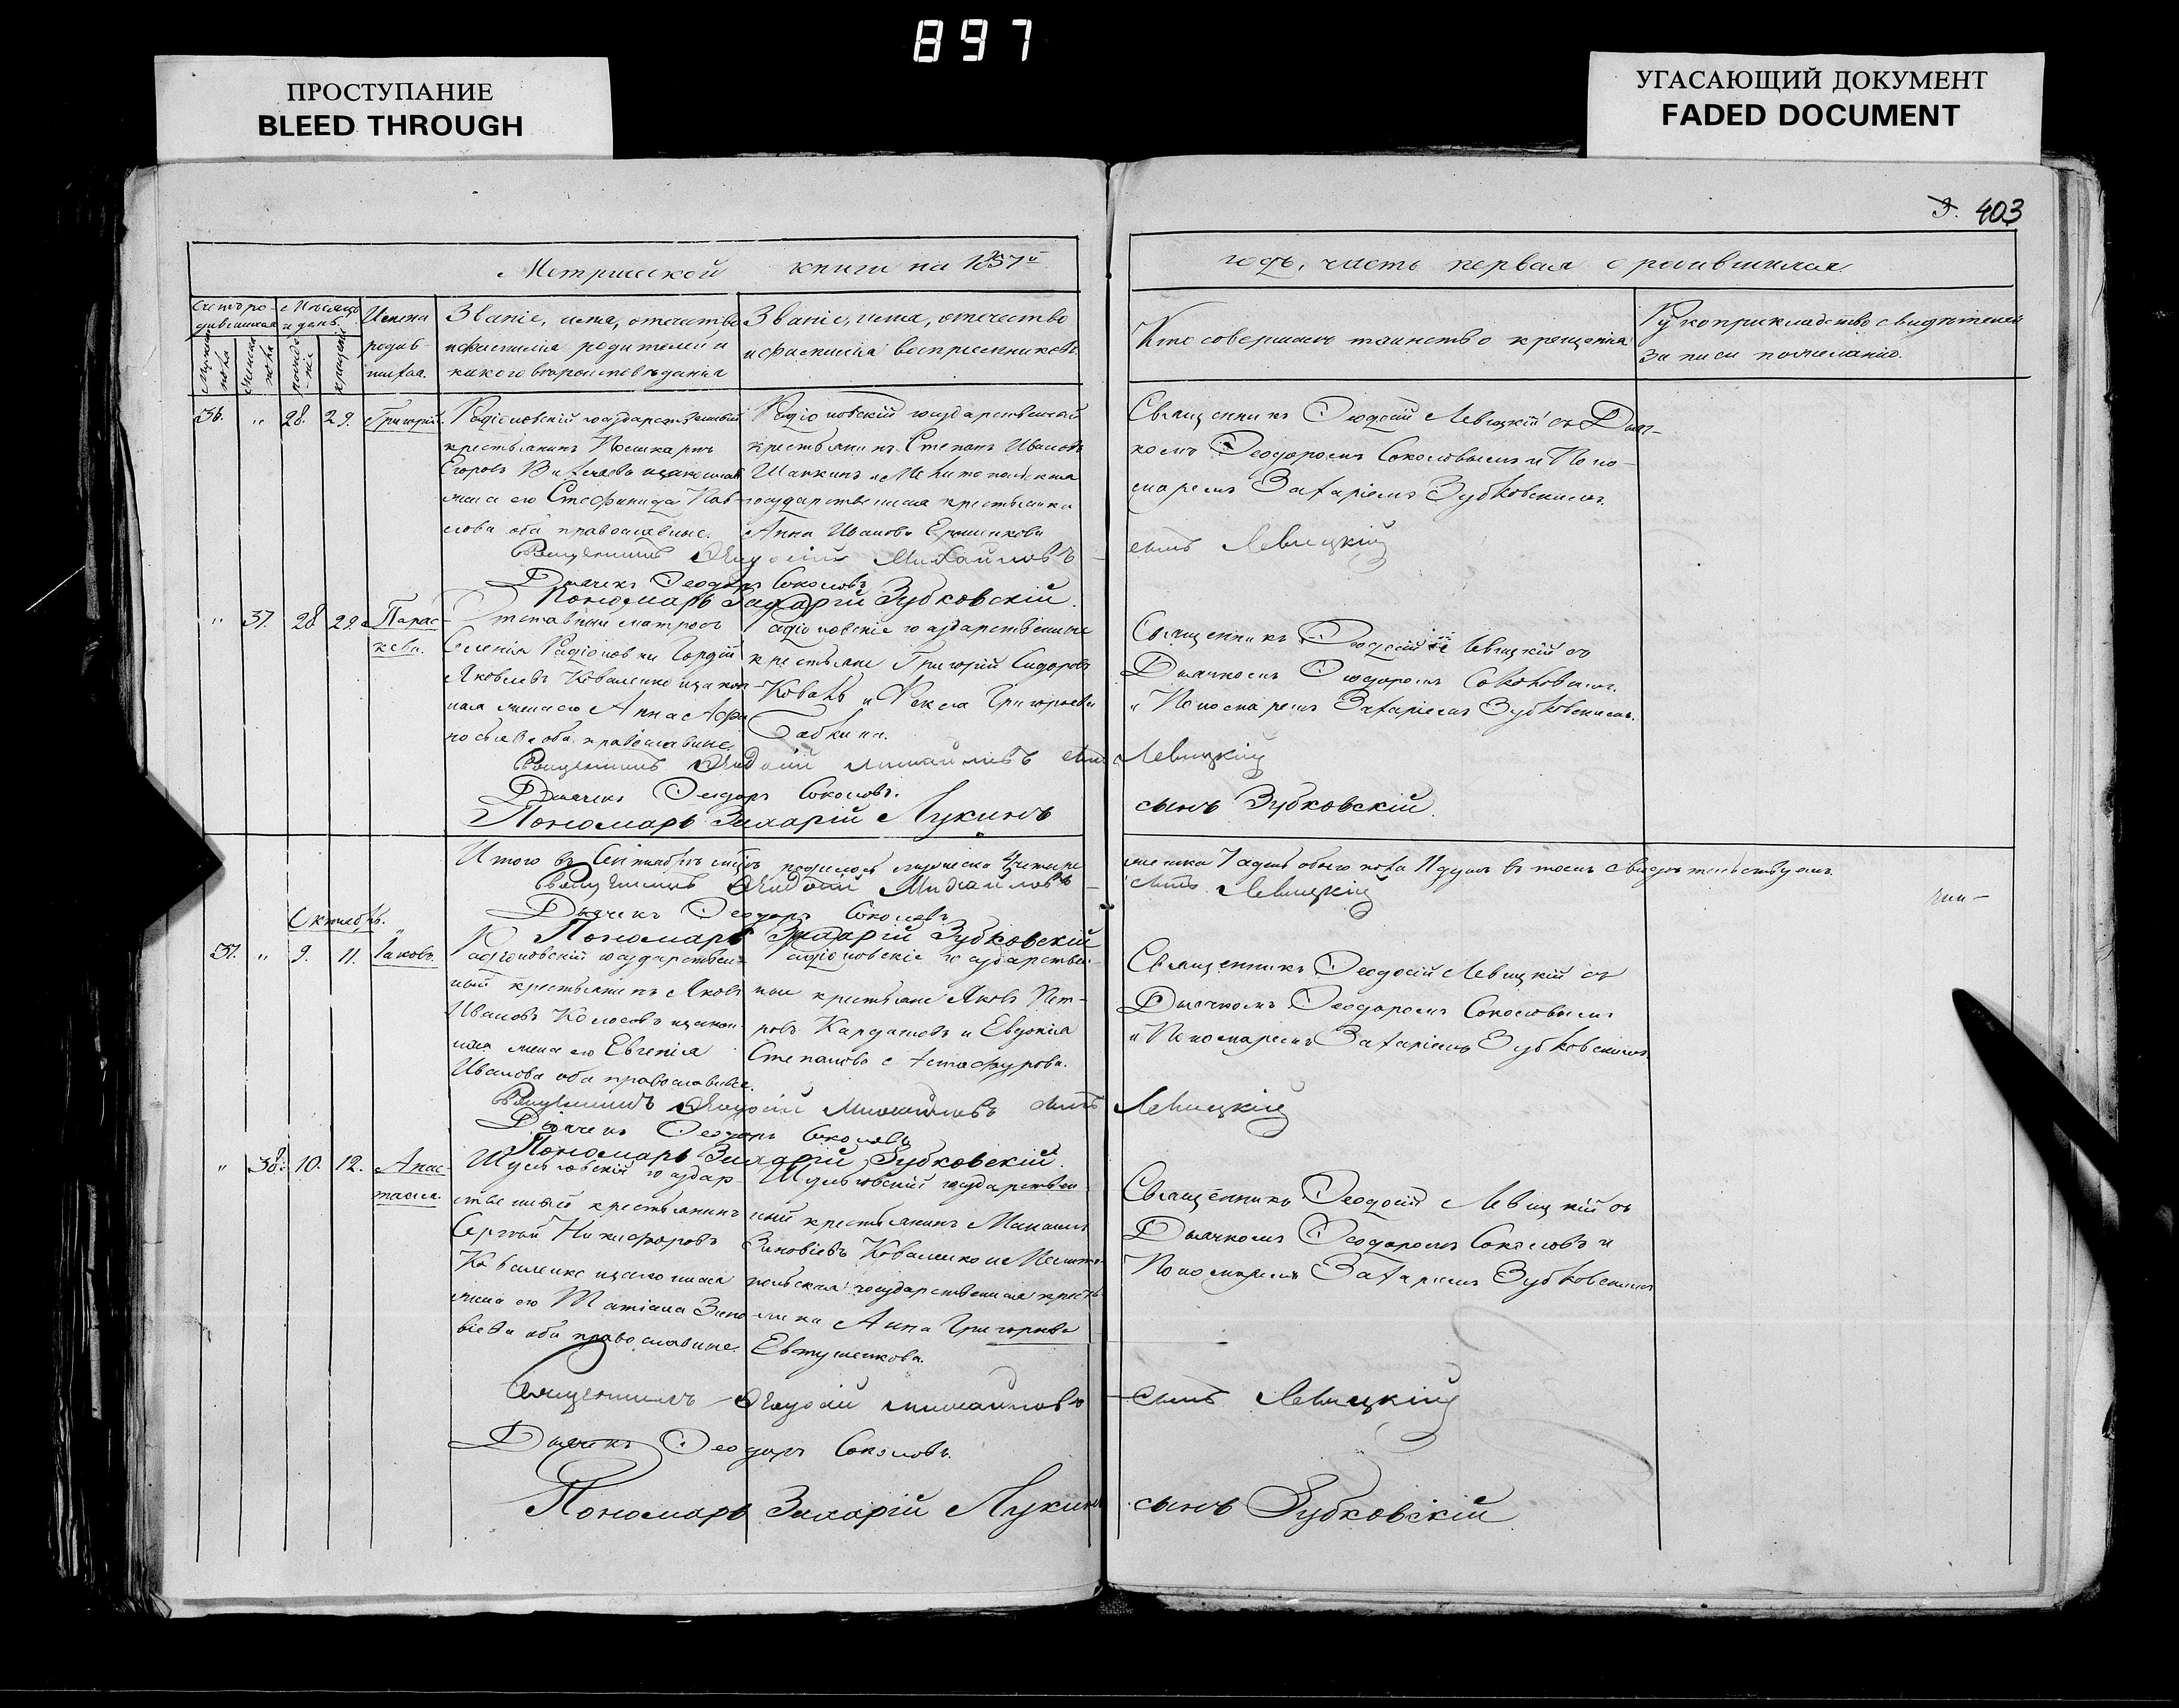 897
ПРОСТУПАНИЕ
BLEED THROUGH
УГАСАЮЩИЙ ДОКУМЕНТ
FADED DOCUMENT
403
Метрической книги на 1837й
годъ, часть первая о родившихся.
Мѣсяцъ
и день.
Имена
родив
шихся.
Званіе, имя, отечество
и фамилія родителей и
какого вѣроисповѣданія
Званіе, имя, отечество
и фамилія воспріемниковъ
Кто совершалъ таинство крещенія
Рукоприкладство свидѣтелей
записи по желанію.
36. " 28. 29. Григорій.
Радіоновскій государственный
крестьянинъ
Егоровъ
жена его Стефанида Пав
лова оба православные.
Радіоновскій государственный
крестьянинъ Степанъ Ивановъ
Шапкинъ и
государственная крестьянка
Анна Иванова
Священникъ Ѳеодосій Левицкій съ Дьяч-
комъ Ѳеодоромъ Соколовымъ и Поно-
маремъ Захаріемъ Зубковскимъ.
Священникъ Ѳеодосій Михайловъ
сынъ Левицкій
Дьячекъ Ѳеодоръ Соколовъ
Пономарь Захарій Зубковскій.
" 37. 28. 29. Парас-
кева.
Отставный матросъ
Селенія Радіоновки Гордій
Яковлевъ Коваленко и закон
ная жена его Анна Афа
насьева оба православные.
Радіоновскіе государственные
крестьяне Григорій Сидоровъ
Коваль и Фекла Григорьева
Бабкина.
Священникъ Ѳеодосій Левицкій съ
Дьячкомъ Ѳеодоромъ Соколовымъ
и Пономаремъ Захаріемъ Зубковскимъ.
Священникъ Ѳеодосій Михайловъ сынъ Левицкій
Дьячекъ Ѳеодоръ Соколовъ.
Пономарь Захарій Лукинъ сынъ Зубковскій.
Итого въ Сентябрѣ мцѣ родилось мужеска четыре
женска 7 а обоего пола 11 душъ въ томъ свидѣтельствуемъ.
Священникъ Ѳеодосій Михайловъ
сынъ Левицкій
Дьячекъ Ѳеодоръ Соколовъ
Пономарь Захарій Зубковскій
Октябрь.
37. " 9. 11. Іаковъ.
Радіоновскій государствен-
ный крестьянинъ Яковъ
Ивановъ Колосовъ и закон-
ная жена его Евгенія
Иванова оба православные.
Радіоновскіе государствен-
ные крестьяне Яковъ Пет-
ровъ и Евдокія
Степанова
Священникъ Ѳеодосій Левицкій съ
Дьячкомъ Ѳеодоромъ Соколовымъ
и Пономаремъ Захаріемъ Зубковскимъ
Священникъ Ѳеодосій Михайловъ сынъ Левицкій
Дьячекъ Ѳеодоръ Соколовъ
Пономарь Захарій Зубковскій.
" 38. 10. 12. Анас-
тасія.
Шульговскій государ-
ственный крестьянинъ
Сергѣй Никифоровъ
Коваленко и законная
жена его Татіана Зино
віева оба православные.
Шульговскій государствен
ный крестьянинъ Михаилъ
Зиновіевъ Коваленко и Мелито
польская государственная кресть
янка Анна Григорьева
Евтушенкова.
Священникъ Ѳеодосій Левицкій съ
Дьячкомъ Ѳеодоромъ Соколовъ и
Пономаремъ Захаріемъ Зубковскимъ
Священникъ Ѳеодосій Михайловъ
сынъ Левицкій
Дьячекъ Ѳеодоръ Соколовъ.
Пономарь Захарій Лукинъ сынъ Зубковскій